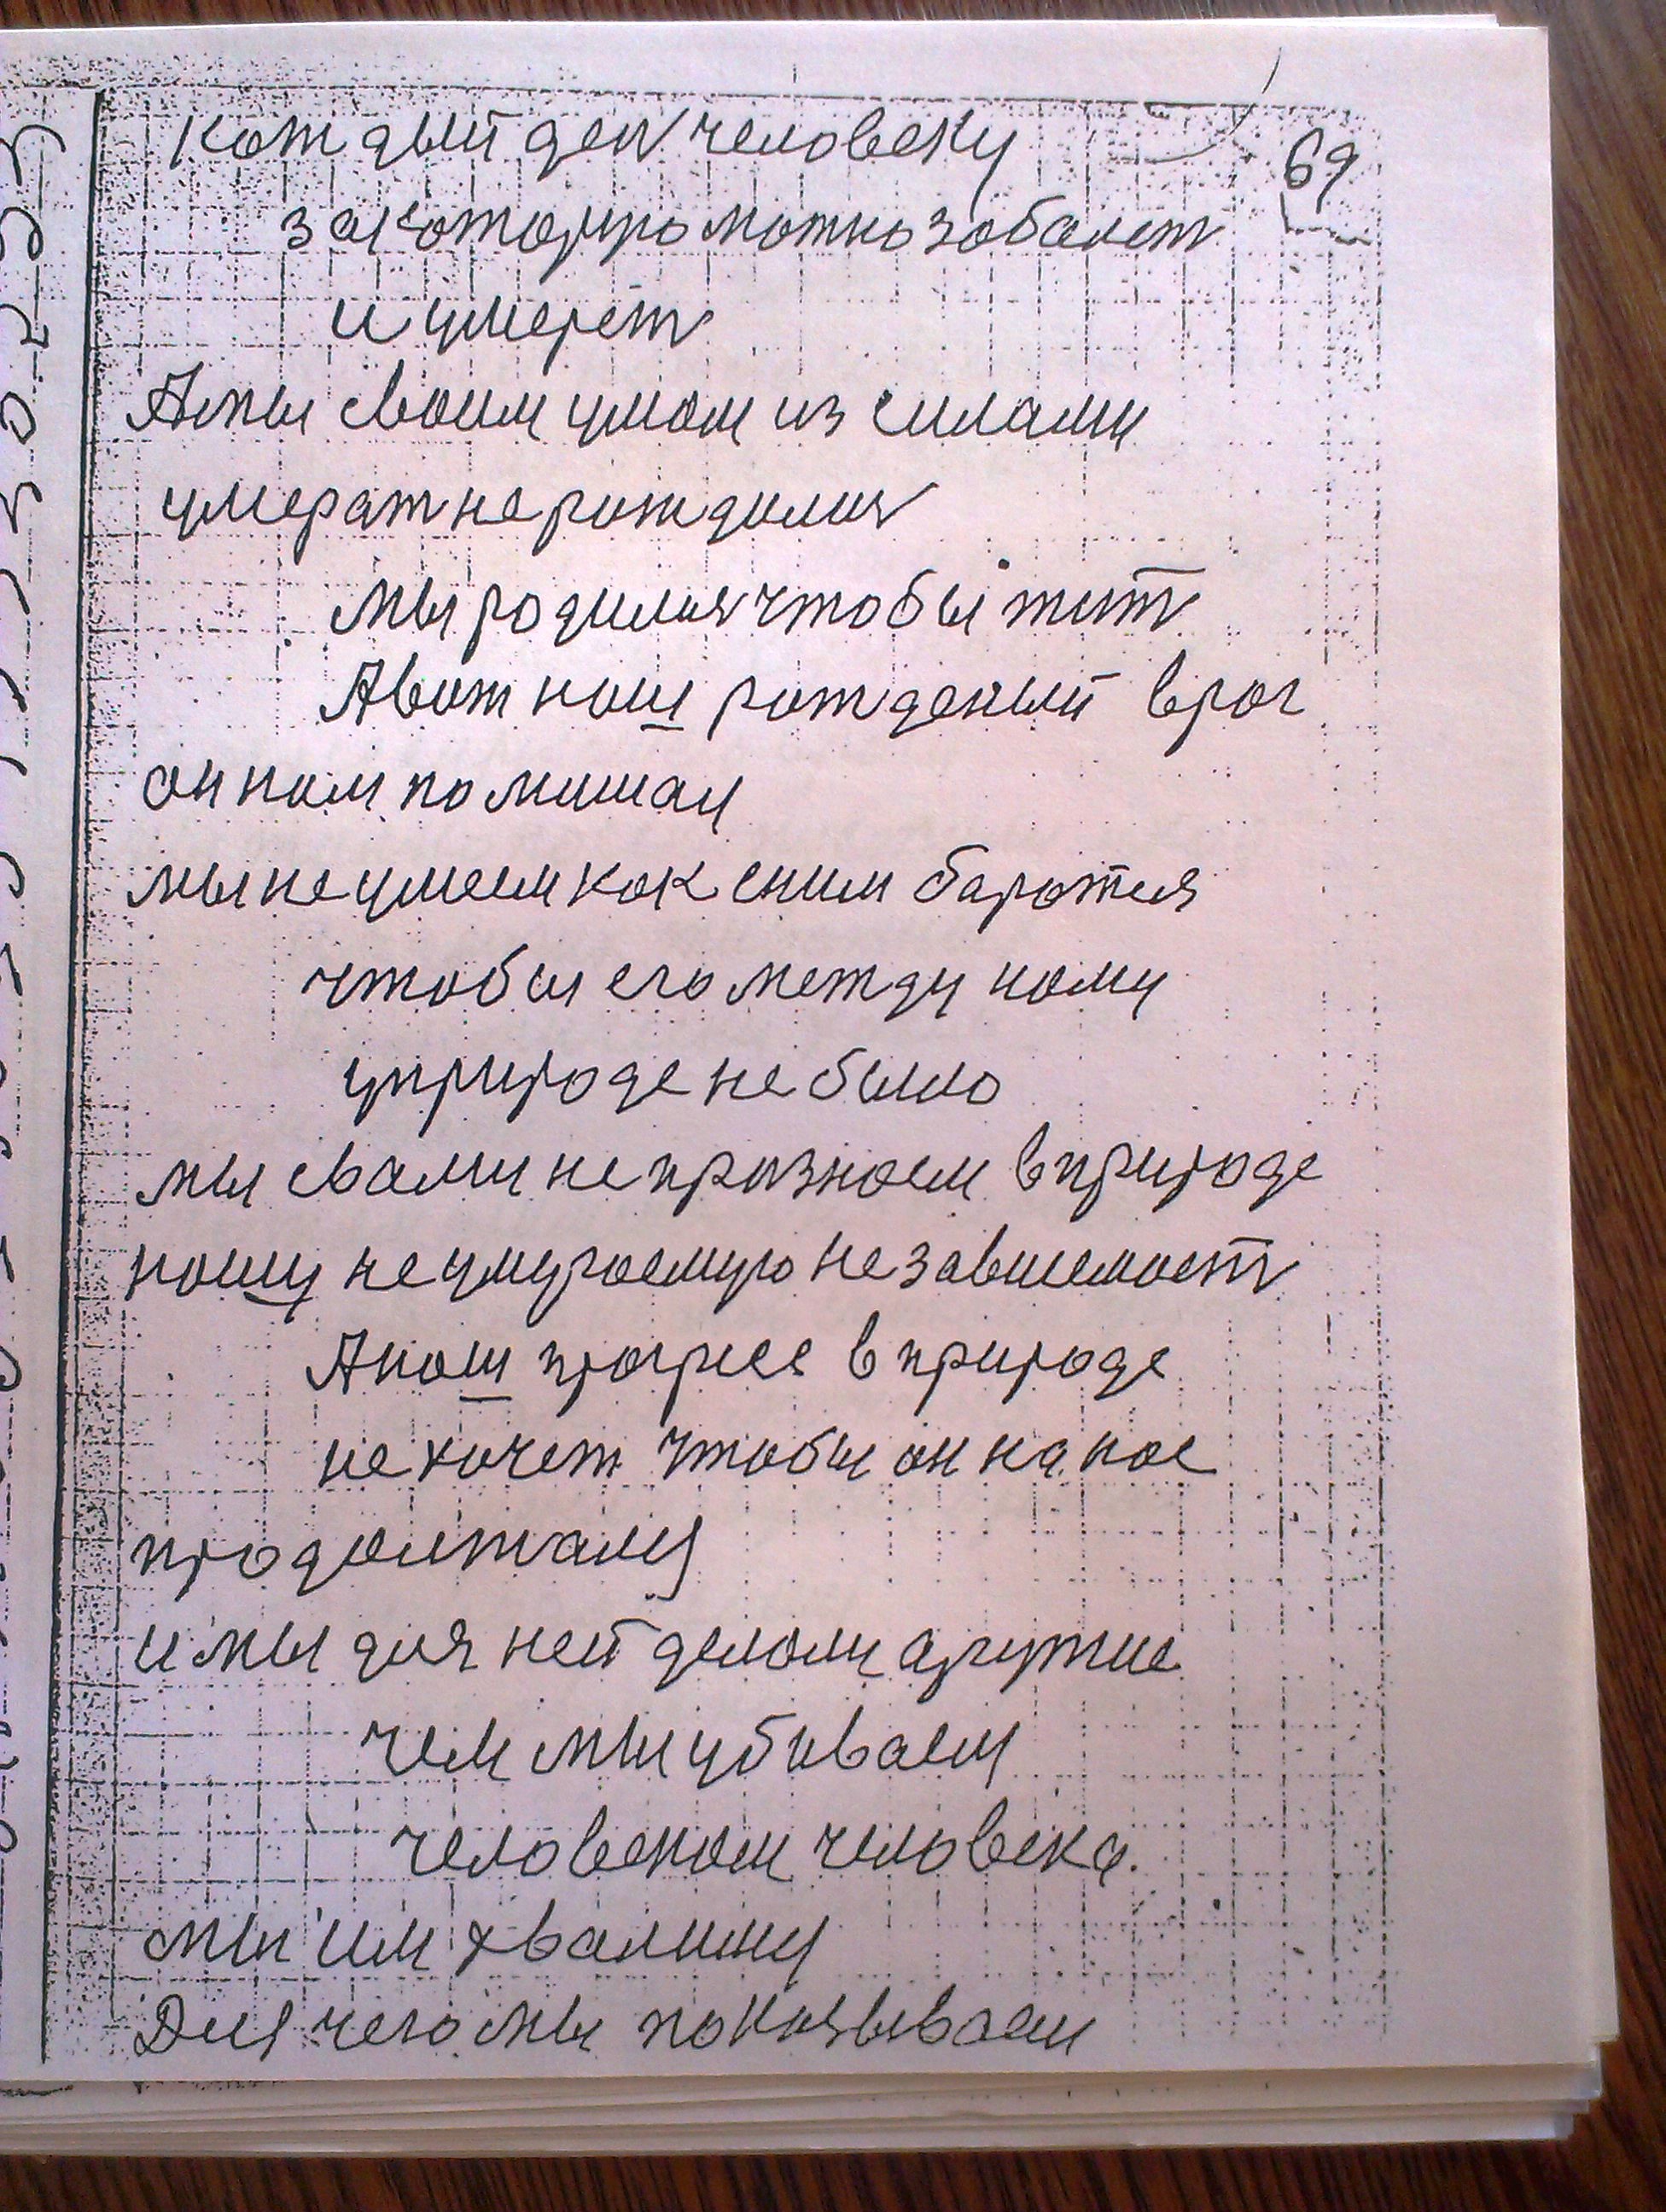 кождый ден человеку
69
закоторуюможно заболет
и умерет
Амы своим умом из силами
умерат не рождалися
мы родилися чтобы жит
Авот наш рожденый враг
он нам помишал
мы не умеем как сним баротися
чтобы его между нами
у природе не было
мы свами не признаем в природе
нашу не умираемую независемост
Анаш прогрес в природе
не хочет чтобы он на нас
продолжался
и мы для ней делали аружие
чем мы убиваем
человеком человека.
мы им хвалимся
Для чего мы показываем